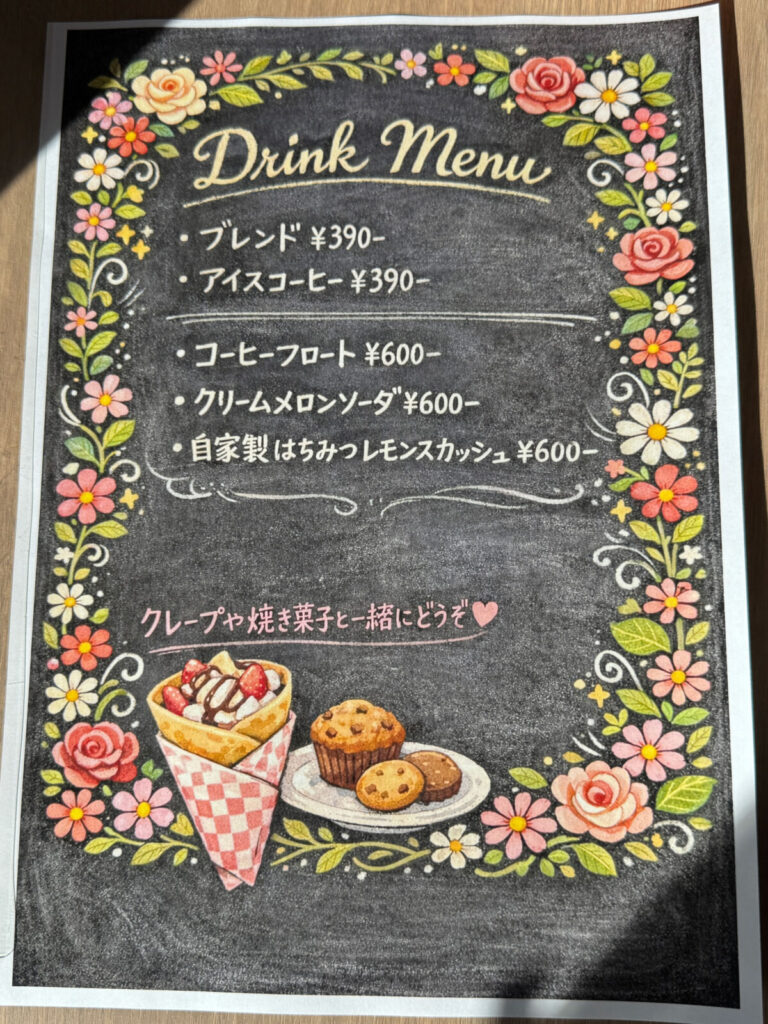 Drink Menu
・ブレンド ¥390-
・アイスコーヒー ¥390-
・コーヒーフロート ¥600-
・クリームメロンソーダ ¥600-
・自家製 はちみつレモンスカッシュ ¥600-
クレープや焼き菓子と一緒にどうぞ♥